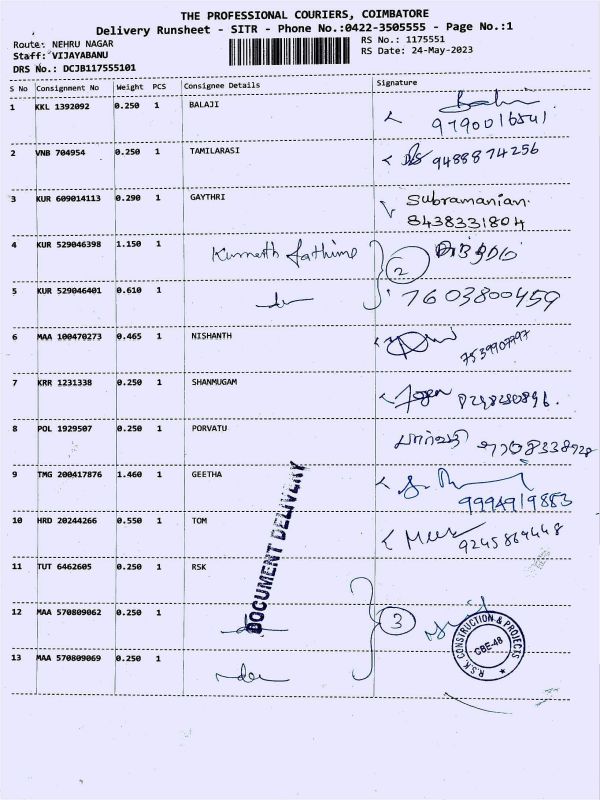 THE PROFESSIONAL COURIERS, COIMBATORE
Delivery Runsheet - SITR - Phone No.:0422-3505555 - Page No.:1
Route: NEHRU NAGAR
RS No.: 1175551
Staff: VIJAYABANU
RS Date: 24-May-2023
DRS No.: DCJB117555101
S No Consignment No Weight PCS Consignee Details Signature
1 KKL 1392092 0.250 1 BALAJI
9790016541
2 VNB 704954 0.250 1 TAMILARASI 9488874256
3 KUR 609014113 0.290 1 GAYTHRI Subramanian.
8438331804
4 KUR 529046398 1.150 1 2
5 KUR 529046401 0.610 1 7603800459
6 MAA 100470273 0.465 1 NISHANTH 7539907797
7 KRR 1231338 0.250 1 SHANMUGAM
8 POL 1929507 0.250 1 PORVATU 9708338928
9 TMG 200417876 1.460 1 GEETHA
9994919883
10 HRD 20244266 0.550 1 TOM 9245864448
11 TUT 6462605 0.250 1 RSK
12 MAA 570809062 0.250 1 3
13 MAA 570809069 0.250 1
DOCUMENT DELIVERY
R.S.K CONSTRUCTION & PROJECTS
CBE-48